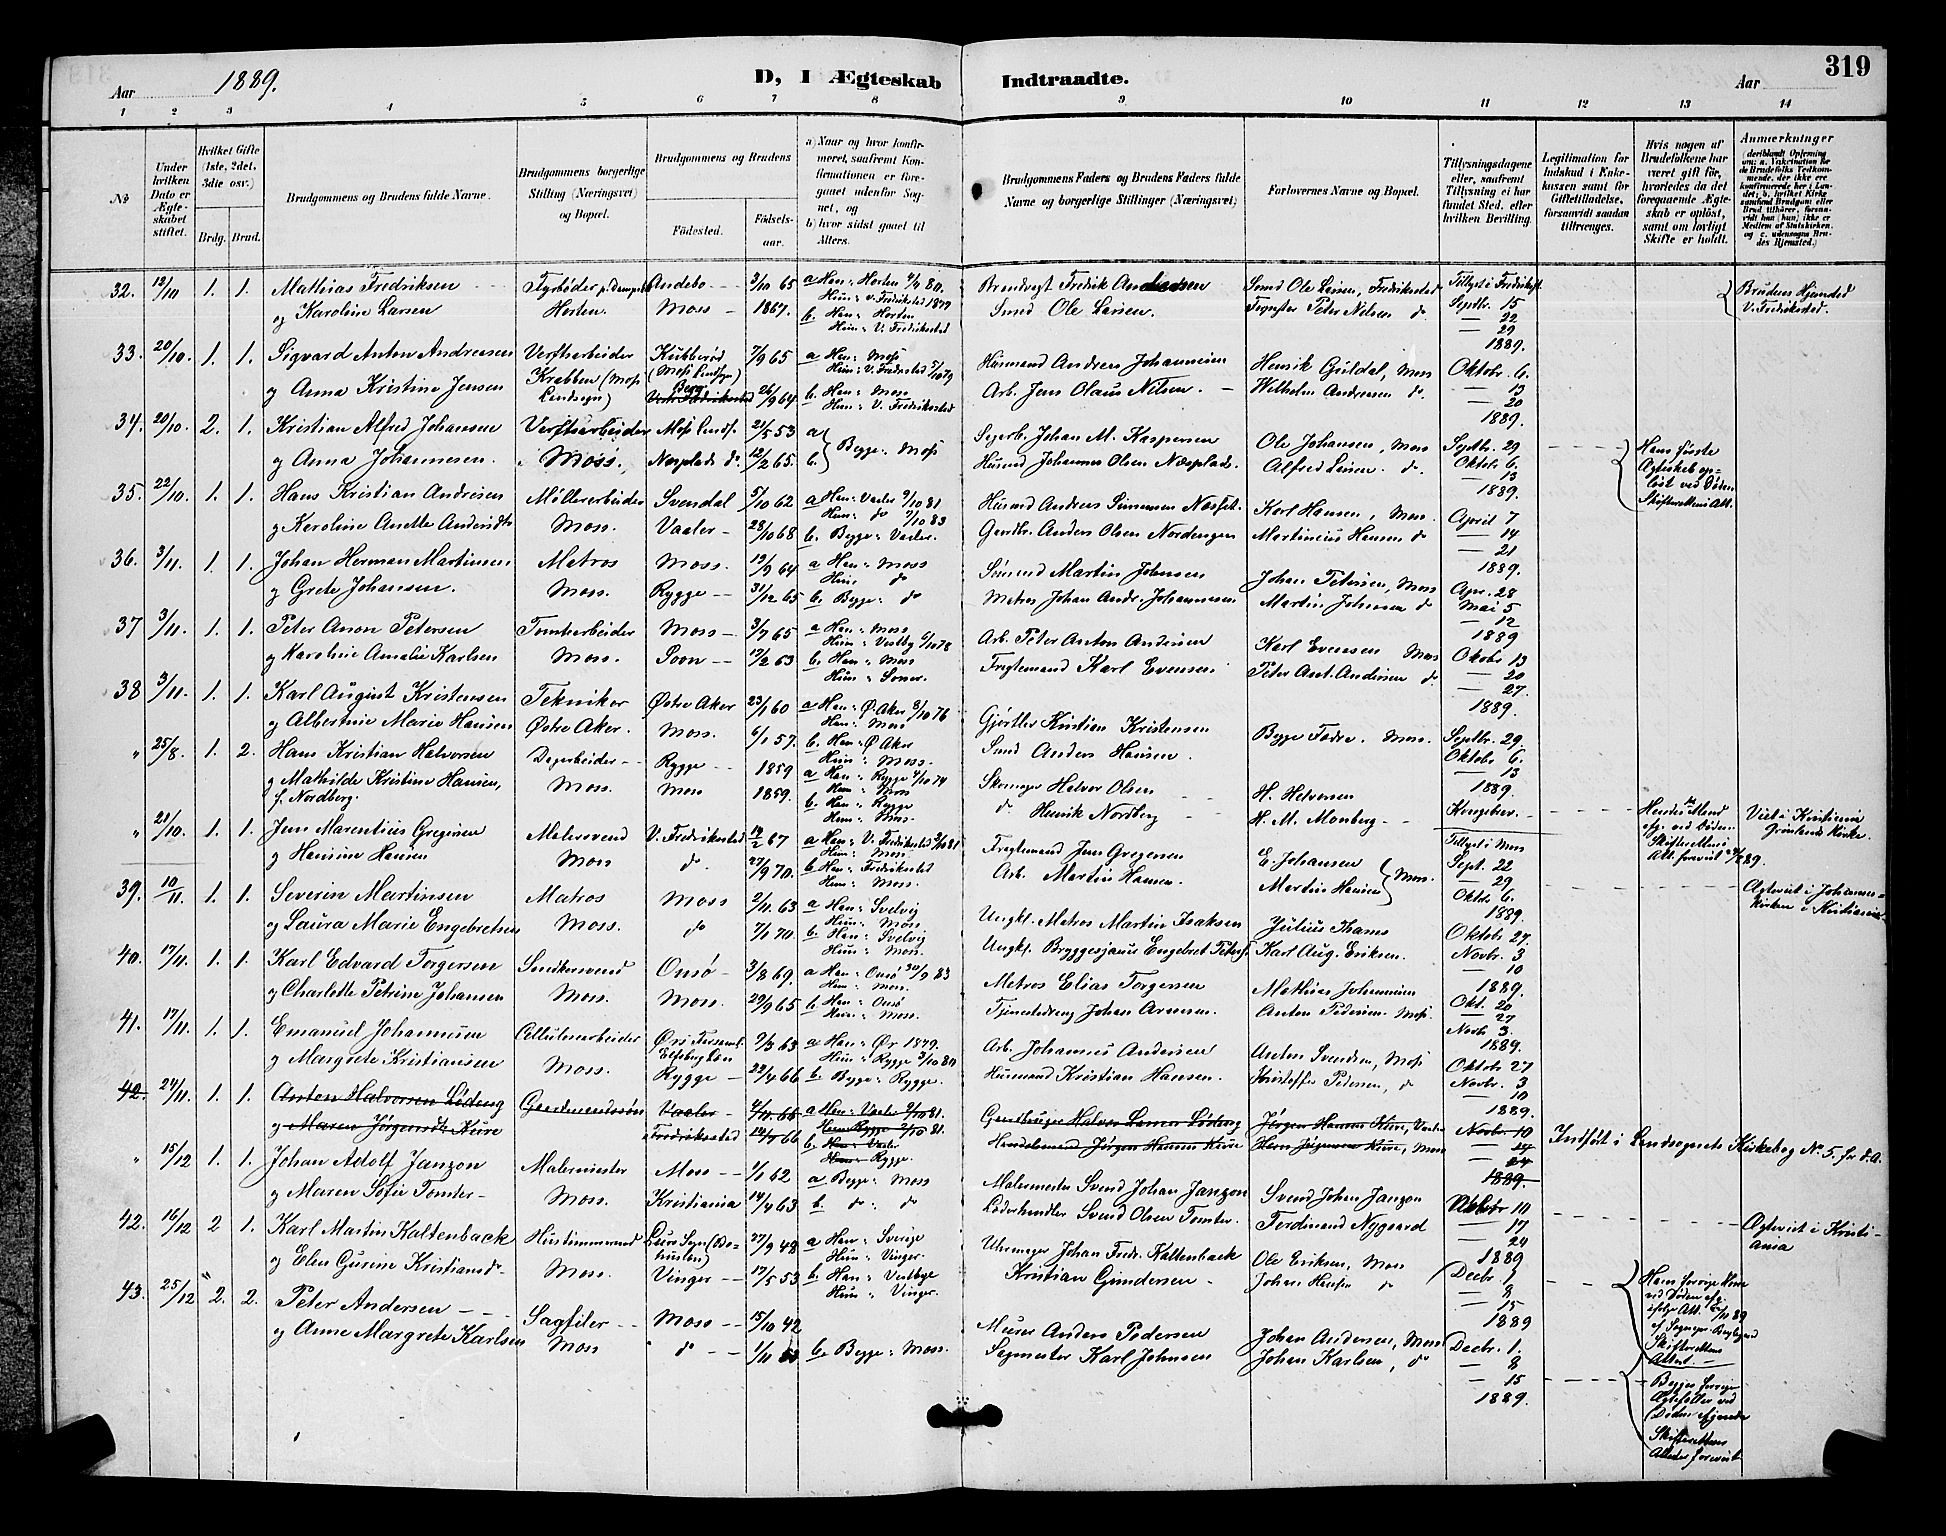 Aar 1889. D, I Ægteskab Indtraadte. Aar 319
1 2 3 4 5 6 7 8 9 10 11 12 13 14
№
Under hvilken Dato er Ægteskabet stiftet.
Hvilket Gifte (1ste, 2det, 3die osv.)
Brdg. Brud.
Brudgommens og Brudens fulde Navne.
Brudgommens borgerlige Stilling (Næringsvei) og Bopæl.
Brudgommens og Brudens
Fødested. Fødselsaar.
a) Naar og hvor konfirmeret, saafremt Konfirmationen er foregaaet udenfor Sognet, og
b) hvor sidst gaaet til Alters.
Brudgommens Faders og Brudens Faders fulde Navne og borgerlige Stillinger (Næringsvei)
Forlovernes Navne og Bopæl.
Tillysningsdagene eller, saafremt Tillysning ei har fundet Sted, efter hvilken Bevilling.
Legitimation for Indskud i Enkekassen samt for Giftetilladelse, forsaavidt saadan tiltrænges.
Hvis nogen af Brudefolkene har været gift før, hvorledes da det foregaaende Ægteskab er opløst, samt om lovligt Skifte er holdt.
Anmærkninger
32. 12/10 1. 1. Mathias Fredriksen Fyrbøder p. Dampsk Andebo 3/10 65 a Han: Horten 4/4 80. Brandvagt Fredrik Andersen Smed Ole Larsen, Fredriksstad Tillyst i Fredrikst. Brudens Hjemsted
og Karoline Larsen Horten. Moss 1867. Hun: V. Fredriksstad 1879 b. Han: Horten Hun: V. Fredriksstad Smed Ole Larsen. Peter Nilsen do Septbr. 15 — 22 — 29 1889. V. Fredriksstad.
33. 20/10. 1. 1. Sigvard Anton Andreasen Verftsarbeider Kubberød (Moss Landsogn) 7/9 65 a Han: Moss Hun: V. Fredriksstad 5/10 79 Husmand Andreas Johannesen Henrik Guldal, Moss Oktobr. 6.
og Anna Kristine Jensen Krabben (Moss Landsogn) Berg 26/9 64 b. Han: Moss Hun: V. Fredriksstad Arb. Jens Olaus Nilsen. Wilhelm Andresen do. — 13 — 20 1889.
34. 20/10. 2. 1. Kristian Alfred Johansen Verftsarbeider Moss Lands. 21/5 53 a b. Begge: Moss Johan M. Kaspersen Ole Johansen, Moss Septbr. 29 Hans første
og Anna Johannesen. Moss. Næsplads do. 12/2 65. Husmd Johannes Olsen Næsplads. Alfred Larsen. do. Oktobr 6. — 13 1889. Ægteskab opløst ved Døden Skifterettens Att.
35. 22/10. 1. 1. Hans Kristian Andresen Møllerarbeider Svendal 5/10 62 a Han: Vaaler 9/10 81 Hun: do 7/10 83 Husmd Andreas Karl Hansen, Moss. April 7
og Karoline Anette Andersdtr Moss. Vaaler 28/10 68 b. Begge: Vaaler. Gaardbr. Anders Olsen Nordengen Martinius Hansen do — 14 — 21 1889.
36. 3/11. 1. 1. Johan Herman Martinsen Matros Moss. 13/9 64 a Han: Moss Hun do Sømand Martin Johnsen Johan Petersen, Moss Apr. 28
og Grete Johansen. Moss. Rygge 31/12 65 b. Begge: do Matros Johan Andr. Johannesen Martin Johnsen do Mai 5 — 12 1889
37 3/11. 1. 1. Peter Anon Petersen Tomtearbeider Moss 3/7 65 a Han: Moss Hun: Vestby 6/10 78 Arb. Peter Anton Andersen Karl Evensen Moss Oktobr 13
og Karoline Amalie Karlsen Moss. Soon 17/2 63 b. Han: Moss Hun: Soner. Fragtemand Karl Evensen Peter Ant. Andersen do — 20 — 27. 1889.
38 3/11. 1. 1. Karl August Kristensen Tekniker Østre Aker 23/1 60 a Han: Ø. Aker 8/10 76 Hun: Moss Gjørtler Kristian Kristensen Begge Fædre. Moss. Septbr. 29.
og Albertine Marie Hansen Østre Aker. Moss. 6/1 57. b. Han: Ø Aker Hun: Moss. Smed Anders Hansen. Oktobr 6. — 13 1889.
" 25/8. 1. 2. Hans Kristian Halvorsen Dagarbeider Rygge 1859 a Han: Rygge 4/10 74 Hun: Moss Skomager Halvor Olsen H. Halvorsen Kongebev. Hendes Mand Viet i Kristiania
og Mathilde Kristine Hansen, f. Nordberg. Moss. Moss 1859. b Han: Rygge Hun: Moss. do Henrik Nordberg H. M. Monberg Grønlands Kirke.
" 21/10. 1. 1. Jens Marentius Gregersen Malersvend V. Fredriksstad 12/2 67 a Han: V. Fredriksstad 2/10 81 Hun: Moss Fragtemand Jens Gregersen E. Johansen Tillyst i Moss Sept. 22
og Hansine Hansen Moss do. 27/9 70. b Han: Fredriksstad Hun: Moss. Arb. Martin Hansen. Martin Hansen Moss. — 29 Oktbr 6. 1889. Ægteviet i Johannes-kirken i Kristiania.
39. 10/11 1. 1. Severin Martinsen Matros Moss 2/11 63 a Han: Svelvig Hun: Moss Ungkl. Matros Martin Isaksen Julius Thams Oktobr 27
og Laura Marie Engebretsen Moss. do 7/1 70. b: Han: Svelvig Hun: Moss. Ungkl. Bryggesjauer Engebret Peters. Karl Aug. Eriksen. Novbr. 3 — 10 1889.
40. 17/11. 1. 1. Karl Edvard Torgersen Snedkersvend Onsø 3/8 69. a Han: Onsø 30/9 83 Hun: Moss. Matros Elias Torgersen Mathias Johannesen Okt. 20
og Charlotte Petrine Johansen Moss. Moss. 29/9 65 b: Han: Onsø Hun: Moss. Tjenestedreng Johan Arnesen. Anton Pedersen. Moss. — 27 Novbr 3. 1889.
41. 17/11. 1. 1. Emanuel Johannesen Cellulosearbeider 7/3 63 a Han: Ør 1879. Hun: Rygge 3/10 80 Arb. Johannes Andersen Anton Svendsen, Moss Oktobr 27
og Margrete Kristiansen Moss. Rygge 22/4 66 b Begge: Rygge. Husmand Kristian Hansen. Kristoffer Pedersen, do Novbr. 3 — 10 1889.
42. 24/11. 1. 1. Anton Halvorsen Løding Gaardmandssøn Vaaler 4/11 66 a Han: Vaaler 9/10 81. Hun: Rygge 2/10 81. Gaardbruger Halvor Larsen Løding Jørgen Hansen Kure, Vaaler Novbr 10 Indført i Landsognets Kirkebog No 5. fr d. A.
og Maren Jørgensdtr Kure Fredriksstad 14/7 66 b. Han: Vaaler Hun: Rygge. Handelsmand Jørgen Hansen Kure Hans Jørgensen Kure, Moss — 17 — 24 1889.
" 15/12 1. 1. Johan Adolf Janzon Malermester Moss 1/1 62 a Begge: Moss Malermester Svend Johan Janzon Svend Johan Janzon Novbr 10
og Maren Sofie Tomter Moss. Kristiania 14/4 63 b do: do Læderhandler Svend Olsen Tomter. Ferdinand Nygaard — 17 — 24 1889 Ægteviet i Kristiania
42. 16/12 2 1. Karl Martin Kaltenback Hustømmermd (Bohuslen) 27/9 48 a Han: Sverige Hun: Vinger. Uhrmager Johan Fredr. Kaltenback Ole Eriksen, Moss Decbr. 1 Hans forrige Kone
og Elen Gurine Kristiansdr Moss. Vinger 17/5 53 b. Han: Vestbye Hun: Vinger. Kristian Gundersen Johan Hansen do — 8 — 15 1889 ved Døden afg. ifølge Att. Skifterettens Attest.
43. 25/12 2. 2. Peter Andersen Sagfiler Moss 15/10 42 Murer Anders Pedersen Johan Andersen, Moss Decbr. 1. Begges forrige
og Anne Margrete Karlsen Moss do 1/11 b Begge: Moss. Sagmester Karl Johnsen Johan Karlsen, do — 8 — 15 1889. Ægtefæller ved Døden afgaaede Skifterettens Attester forevist